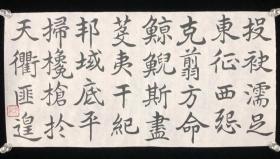 投袂濡足
東征西怨
克翦方命
鯨鯢斯盡
芟夷干紀
邦域底平
掃欃槍於
天衢匪遑